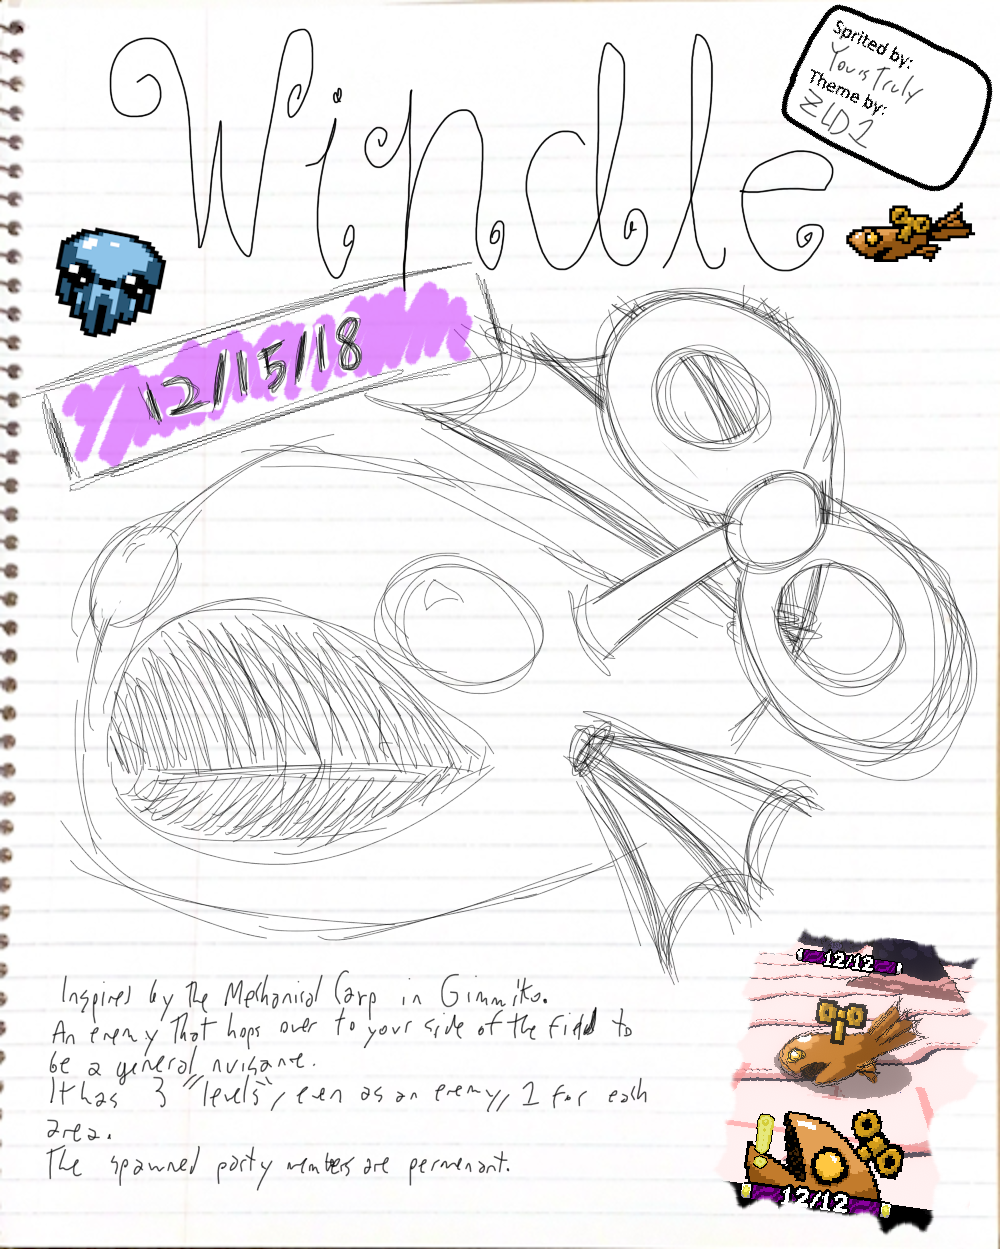 Windle
Sprited by:
Yours Truly
Theme by:
ZLD1
12/15/18
Inspired by the Mechanical Carp in Gimmiko.
An enemy that hops over to your side of the field to
be a general nuisane.
It has 3 "levels", even as an enemy, 1 for each
area.
The spawned party members are permenant.
12/12
12/12